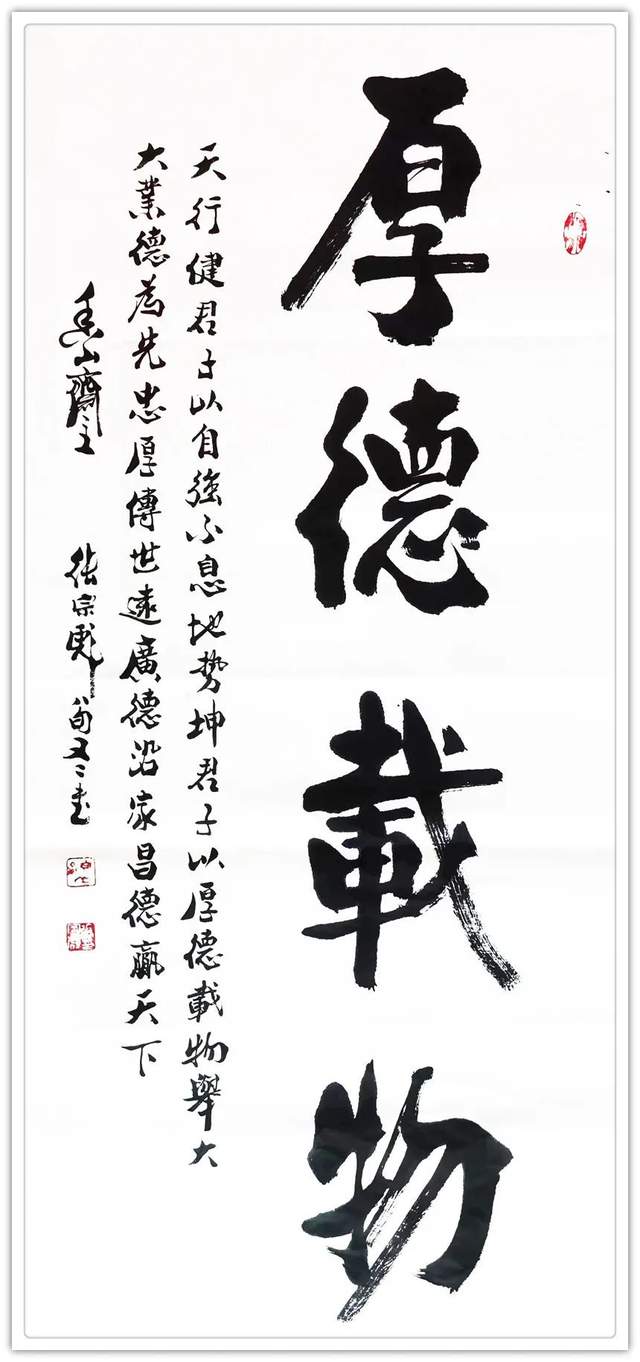 厚德載物
天行健君子以自強不息地勢坤君子以厚德載物舉大
大業德為先忠厚傳世遠廣德沿家昌德贏天下
香山齋主
張宗彪八旬又二書